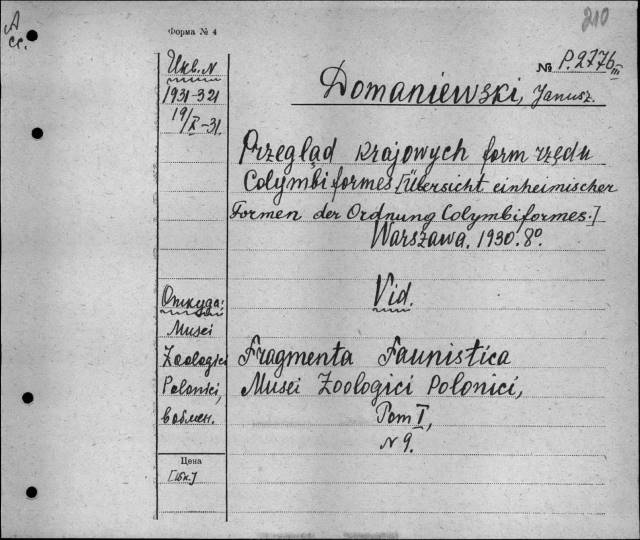 A
cc.
210
Форма № 4
№ P.2776 III
Domaniewski, Janusz.
Инв. N
1931-321
19/X-31.
Przegląd krajowych form rzędu
Colymbiformes [Übersicht einheimischer
Formen der Ordnung Colymbiformes.]
Warszawa. 1930. 8°.
Vid.
Откуда:
Musei
Zoologici
Polonici,
в обмен.
Fragmenta Faunistica
Musei Zoologici Polonici,
Tom I,
N 9.
Цена
[15к.]